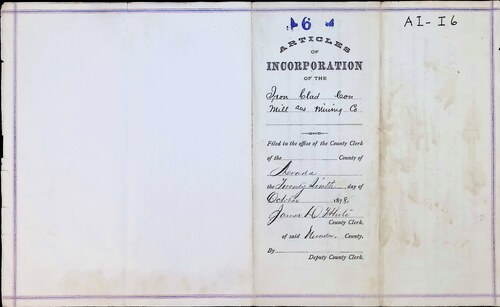 6
AI-I6
ARTICLES
OF
INCORPORATION
OF THE
Iron Clad Con
Mill and Mining Co
Filed in the office of the County Clerk
of the County of
Nevada
the Twenty Sixth day of
October 1878.
James D. White
County Clerk.
of said Nevada County.
By
Deputy County Clerk.